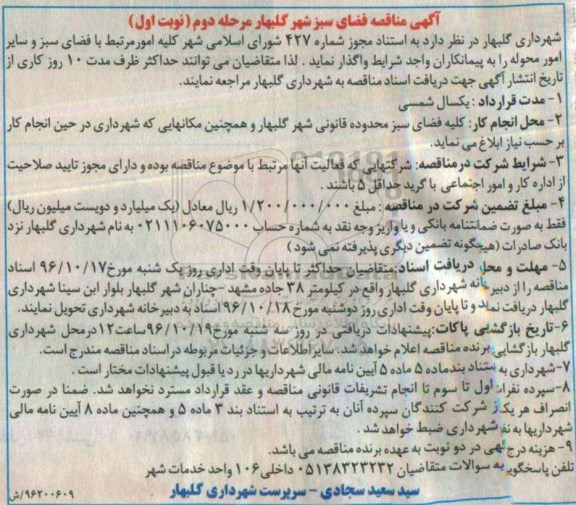 آگهی مناقصه فضای سبز شهر گلبهار مرحله دوم (نوبت اول)
شهرداری گلبهار در نظر دارد به استناد مجوز شماره ۴۲۷ شورای اسلامی شهر کلیه امور مرتبط با فضای سبز و سایر
امور محوله را به پیمانکاران واجد شرایط واگذار نماید . لذا متقاضیان می توانند حداکثر ظرف مدت ۱۰ روز کاری از
تاریخ انتشار آگهی جهت دریافت اسناد مناقصه به شهرداری گلبهار مراجعه نمایند.
۱- مدت قرارداد : یکسال شمسی
۲- محل انجام کار : کلیه فضای سبز محدوده قانونی شهر گلبهار و همچنین مکانهایی که شهرداری در حین انجام کار
بر حسب نیاز ابلاغ می نماید.
۳- شرایط شرکت در مناقصه: شرکتهایی که فعالیت آنها مرتبط با موضوع مناقصه بوده و دارای مجوز تایید صلاحیت
از اداره کار و امور اجتماعی با گرید حداقل ۵ باشند .
۴- مبلغ تضمین شرکت در مناقصه : مبلغ ۱/۲۰۰/۰۰۰/۰۰۰ ریال معادل (یک میلیارد و دویست میلیون ریال)
فقط به صورت ضمانتنامه بانکی و یا واریز وجه نقد به شماره حساب ۰۲۱۱۱۰۶۰۷۵۰۰۰ به نام شهرداری گلبهار نزد
بانک صادرات (هیچگونه تضمین دیگری پذیرفته نمی شود )
۵- مهلت و محل دریافت اسناد: متقاضیان حداکثر تا پایان وقت اداری روز یک شنبه مورخ ۹۶/۱۰/۱۷ اسناد
مناقصه را از دبیرخانه شهرداری گلبهار واقع در کیلومتر ۳۸ جاده مشهد -چناران شهر گلبهار بلوار ابن سینا شهرداری
گلبهار دریافت نماید و تا پایان وقت اداری روز دوشنبه مورخ ۹۶/۱۰/۱۸ اسناد به دبیرخانه شهرداری تحویل نمایند.
۶- تاریخ بازگشایی پاکات: پیشنهادات دریافتی در روز سه شنبه مورخ ۹۶/۱۰/۱۹ ساعت ۱۲ در محل شهرداری
گلبهار بازگشایی برنده مناقصه اعلام خواهد شد. سایر اطلاعات و جزئیات مربوطه در اسناد مناقصه مندرج است.
۷-شهرداری به استناد بند ماده ۵ ماده ۵ آیین نامه مالی شهرداریها در رد یا قبول پیشنهادات مختار است .
۸-سپرده نفرات اول تا سوم تا انجام تشریفات قانونی مناقصه و عقد قرارداد مسترد نخواهد شد. ضمنا در صورت
انصراف هر یک از شرکت کنندگان سپرده آنان به ترتیب به استناد بند ۳ ماده ۵ و همچنین ماده ۸ آیین نامه مالی
شهرداریها به نفع شهرداری ضبط خواهد شد .
۹- هزینه درج آگهی در دو نوبت به عهده برنده مناقصه می باشد.
تلفن پاسخگویی به سوالات متقاضیان ۰۵۱۳۸۳۲۳۲۳۲ داخلی ۱۰۶ واحد خدمات شهر
سید سعید سجادی - سرپرست شهرداری گلبهار
۹۶۲۰۰۶۰۹/ش